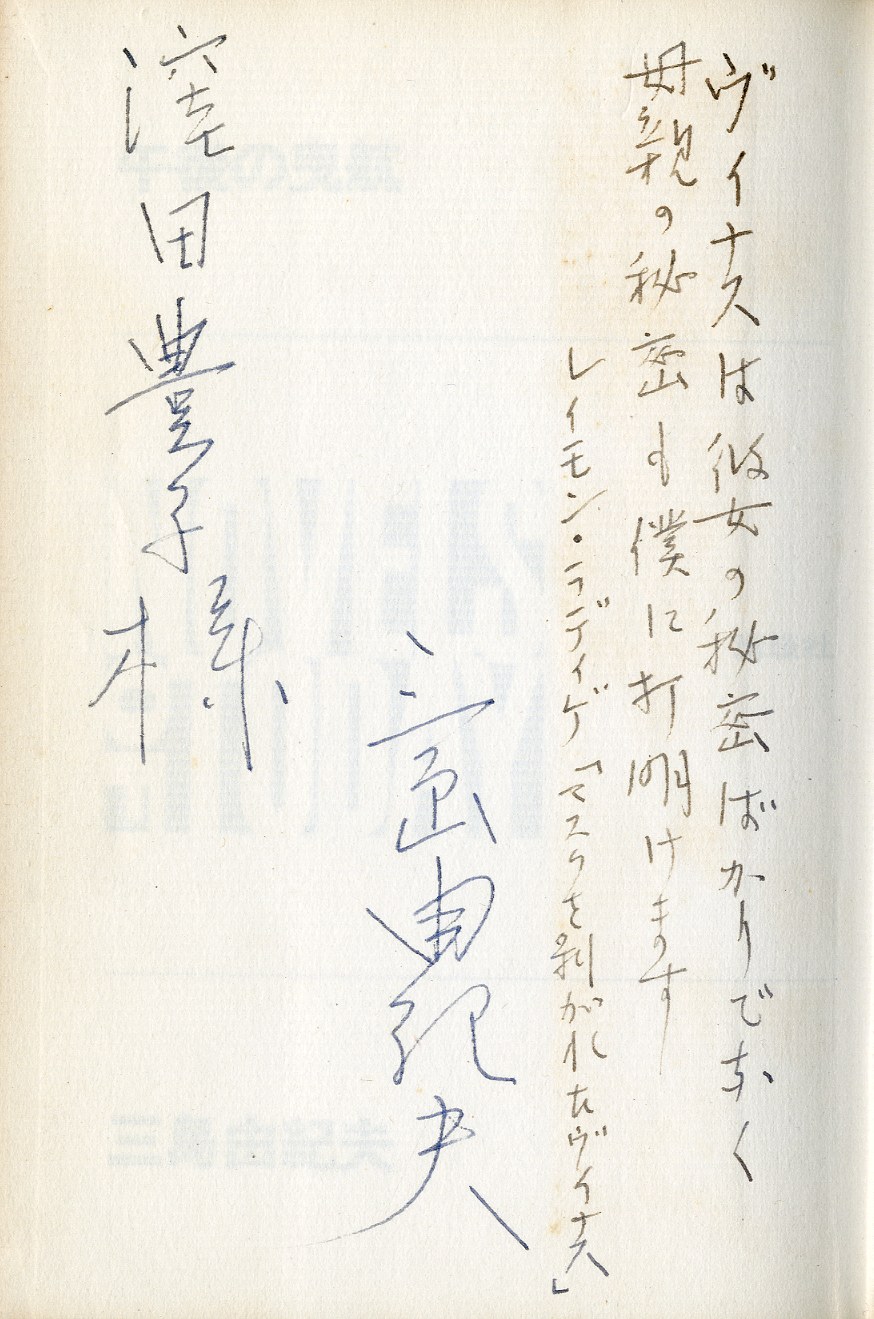 ヴィナスは彼女の秘密ばかりでなく
母親の秘密も僕に打明けます
レイモン・ラディゲ「マスクを剥がれたヴィナス」
三島由紀夫
漥田豊子様